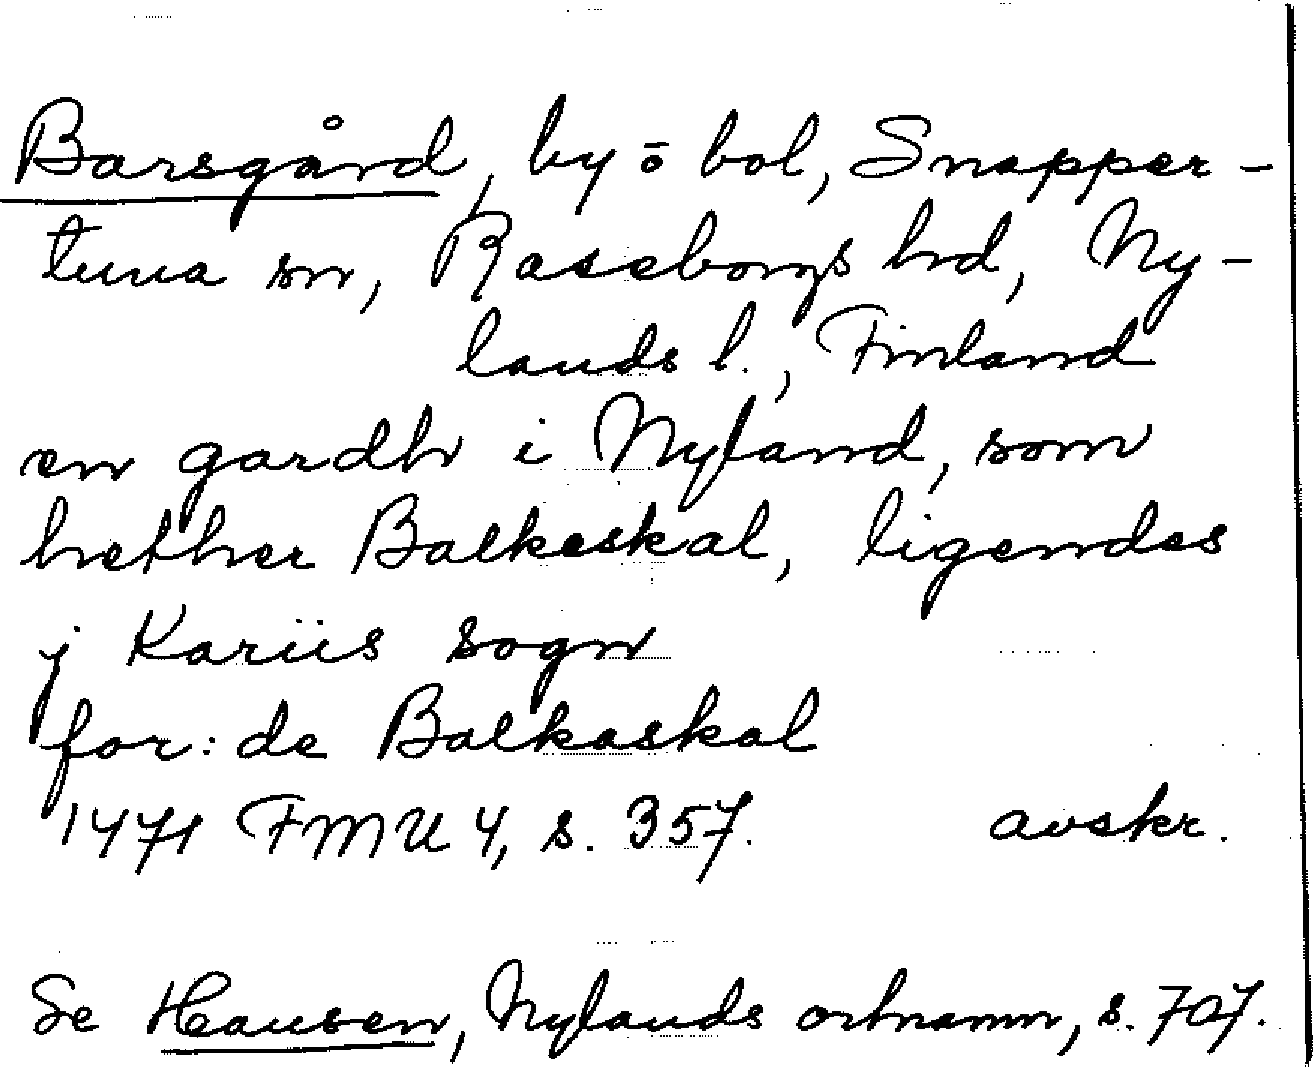 Barsgård, by o bol, Snapper-
tuna sn, Raseborgs hd, Ny-
lands l., Finland
en gardh i Nyland, som
hether Balkeskal, ligendes
j Kariis sogn
for: de Balkaskal
1471 FMU 4, s. 357. avskr.
Se Hausen, Nylands ortnamn, s. 707.